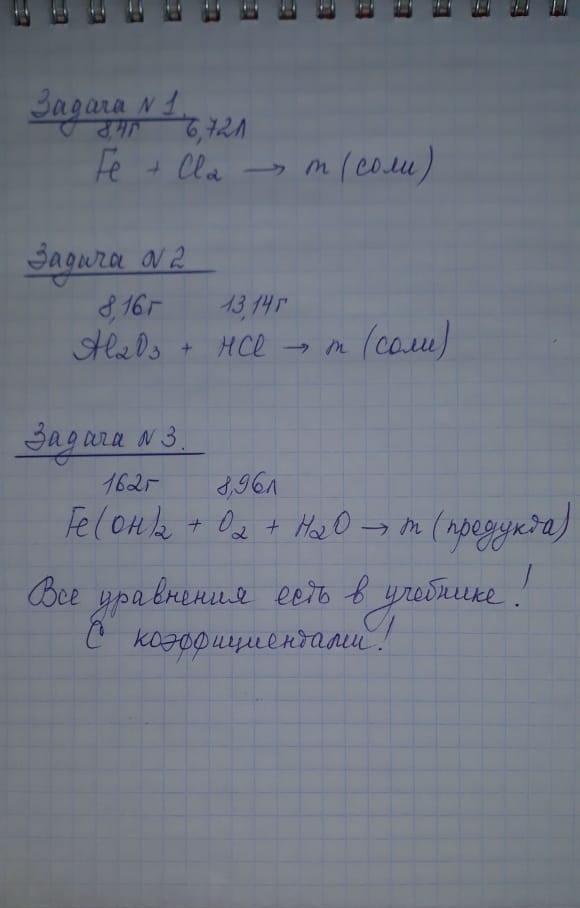 Задача N 1.
8,4г 6,72л
Fe + Cl₂ → m (соли)
Задача N 2
8,16г 13,14г
Al₂O₃ + HCl → m (соли)
Задача N 3.
162г 8,96л
Fe(OH)₂ + O₂ + H₂O → m (продукта)
Все уравнения есть в учебнике!
С коэффициентами!